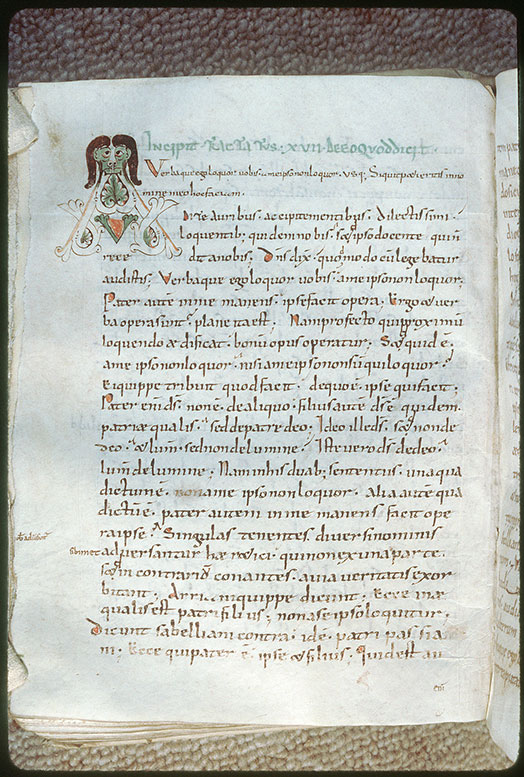 Incipit tractatus; xvii. de eo quod dicit.
Verba quę ego loquor vobis, a me ipso non loquor. usq; Si quid petieritis in no
mine meo hoc faciam.
dite auribus. accipite mentibus. dilectissimi.
loquente nobis. sed ipso docente qui n
rece dit a nobis; Dns dix. quod modo cū legebatur
audistis; Verba que ego loquor vobis. a me ipso non loquor;
Pater autē in me manens. ipse facit opera; Ergo et ver
ba opera sunt; plane ita est; Nam profecto qui proximū
loquendo ædificat. bonū opus operatur; Sed quid ē.
a me ipso non loquor. nisi a me ipso non sū qui loquor;
Ei quippe tribuit quod facit. de quo ē. ipse qui facit;
Pater enī ds. non ē. de aliquo; filius autē ds ē quidem.
patri æqualis. sed de patre deo; Ideo ille ds. sed non de
deo. et lum. sed non de lumine; Iste vero ds de deo.
lum de lumine; Nam in his duab; sententiis. una qua
dictum ē. non a me ipso non loquor. Alia autē qua
dictū ē. pater autem in me manens facit ope
ra ipse. Singulas tenentes diversi nominis
adversantur hæretici. qui non ex una parte.
sed in contrariū conantes. a via veritatis exor
bitant; Arriani quippe dicunt; Ecce inæ
qualis est patri filius; non a se ipso loquitur.
Dicunt sabelliani contra. id ē. patri passia
ni. Ecce qui pater ē. ipse et filius. Quid est an